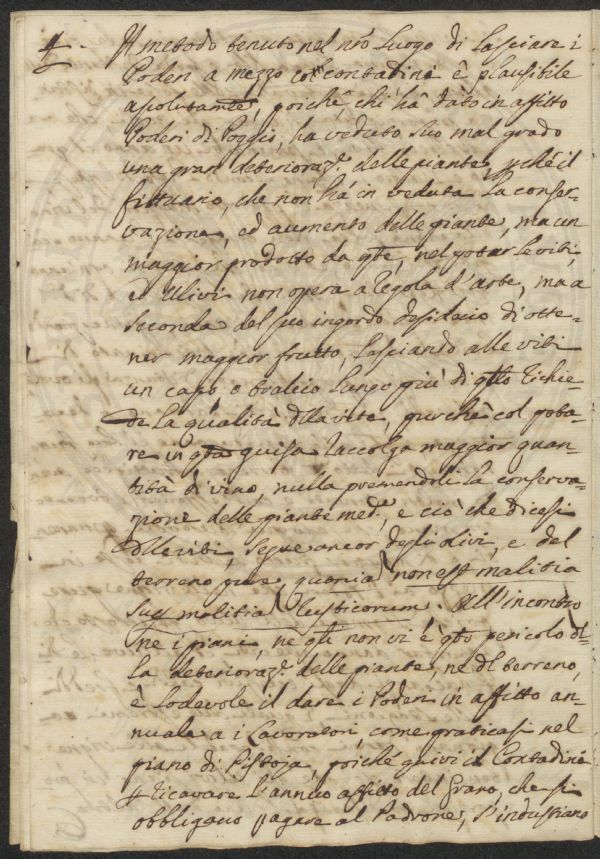 4. Il metodo tenuto nel nro Luogo di Lasciare i
Poderi a mezzo col contadini è plausibile
asolutamte, poichè, chi hà dato in affitto
Poderi di Poggio, ha veduto suo mal grado
una gran deterioraz.e delle piante, pchè il
fittuario, che non hà in veduta la conser-
vazione, ed aumento delle piante, ma un
maggior prodotto da qte, nel potar le viti,
ed Ulivi non opera a regola d'arte, ma a
seconda del suo ingordo desiderio di otte-
ner maggior frutto, Lasciando alle viti
un capo, o tralcio lungo più di qllo richie-
de la qualità dlla vite, purchè col pota-
re in qta guisa raccolga maggior quan-
tità di vino, nulla premendoli la conserva-
zione delle piante med.e, e ciò che dicesi
dlle viti, segue ancor degli olivi, e del
terreno pure, quonia non est malitia
sup malitia rusticorum. All'incontro
ne i piani, ne qli non vi è qto pericolo dl-
la deterioraz.e delle piante, ne dl terreno,
è Lodevole il dare i Poderi in affitto an-
nuale a i Lavoratori, come praticasi nel
piano di Pistoja, poichè quivi il Contadino
p ricavare l'annuo affitto del Grano, che si
obbligano pagare al Padrone, s'industriano